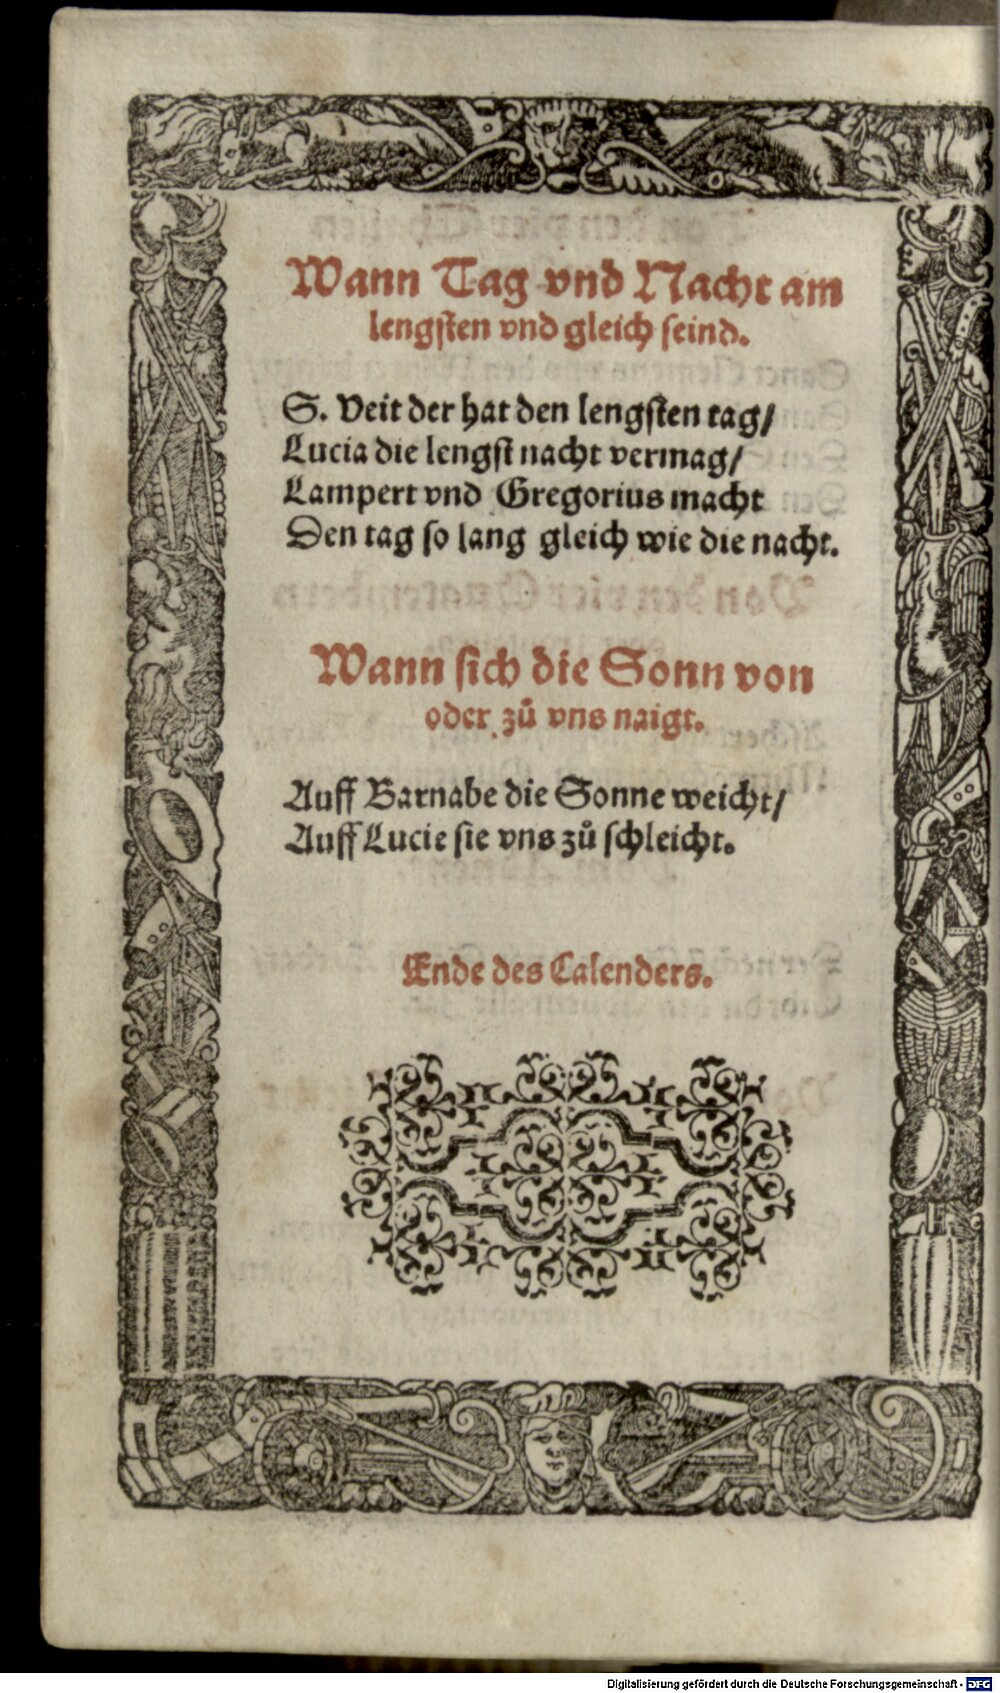 Wann Tag vnd Nacht am
lengsten vnd gleich seind.
S. Veit der hat den lengsten tag/
Lucia die lengst nacht vermag/
Lampert vnd Gregorius macht
Den tag so lang gleich wie die nacht.
Wann sich die Sonn von
oder zů vns naigt.
Auff Barnabe die Sonne weicht/
Auff Lucie sie vns zů schleicht.
Ende des Calenders.
Digitalisierung gefördert durch die Deutsche Forschungsgemeinschaft - DFG